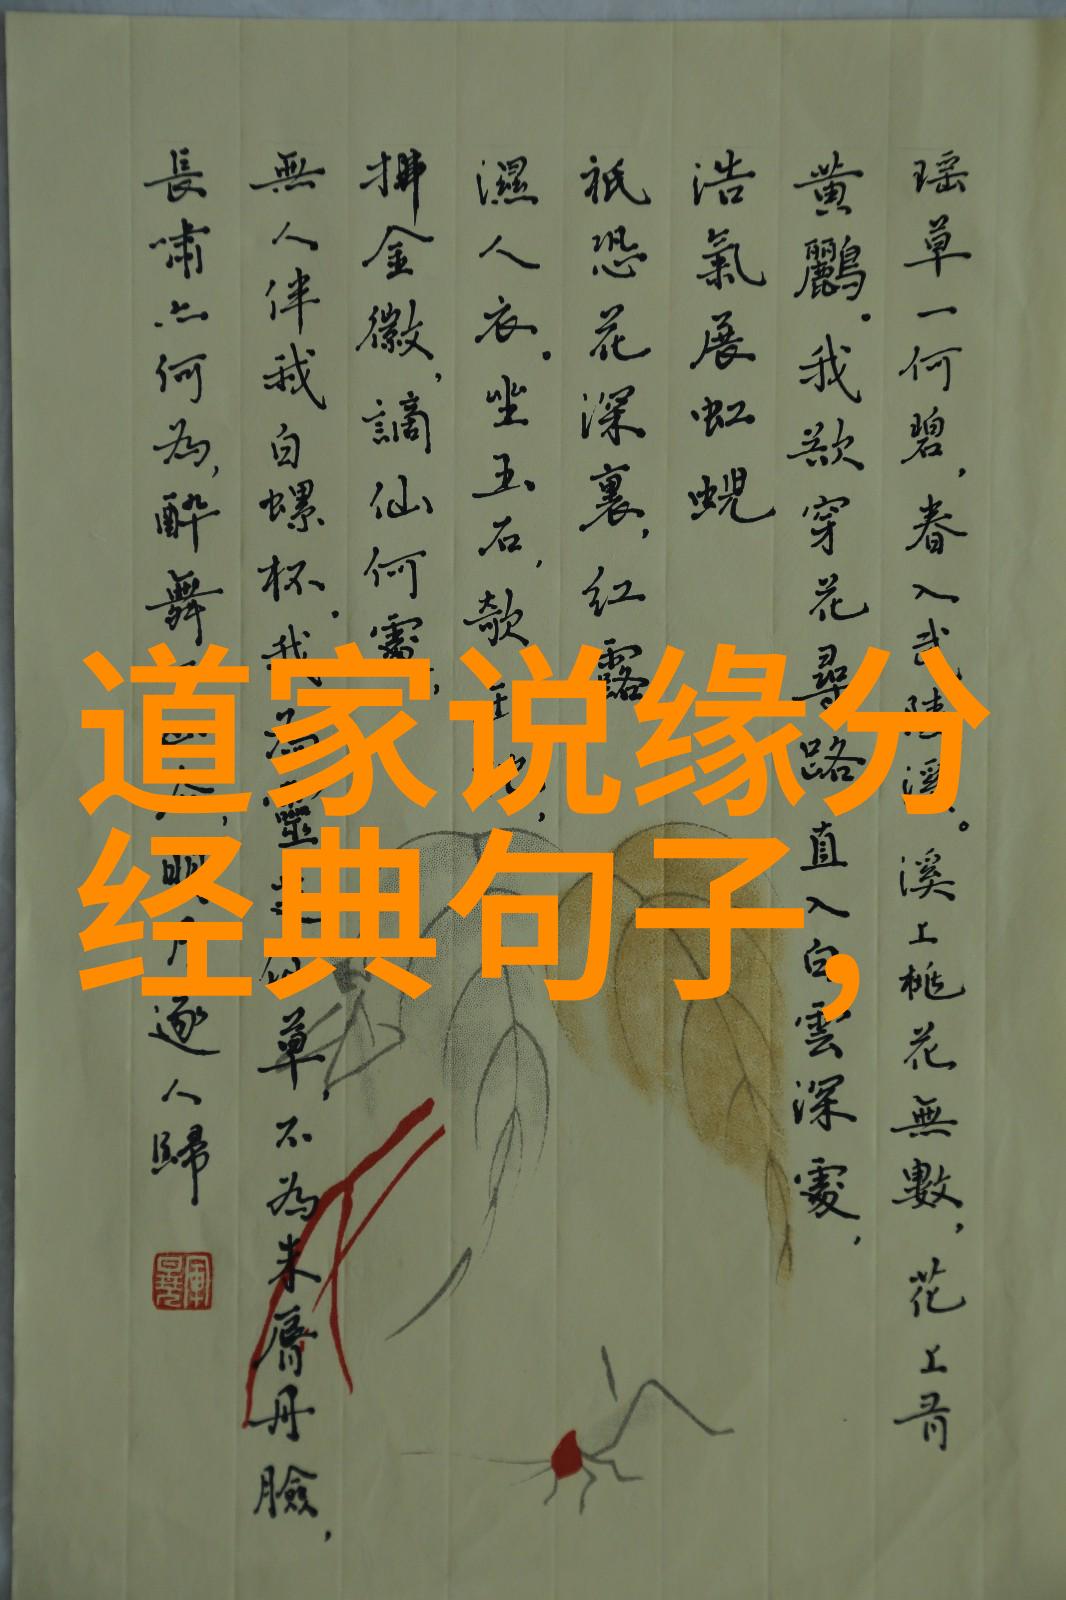 道家说缘分
经典句子，
瑶草一何碧，春入武陵溪。溪上桃花無數，花上有
黄鸝。我欲穿花尋路直入白雲深處，
浩氣展虹蜺
祇恐花深裏，紅露
濕人衣。坐玉石，欹
拂金徽，謫仙何處，
無人伴我白螺杯。我為靈芝仙草，不為朱唇丹臉，
長嘯亦何為，醉舞 明月逐人歸